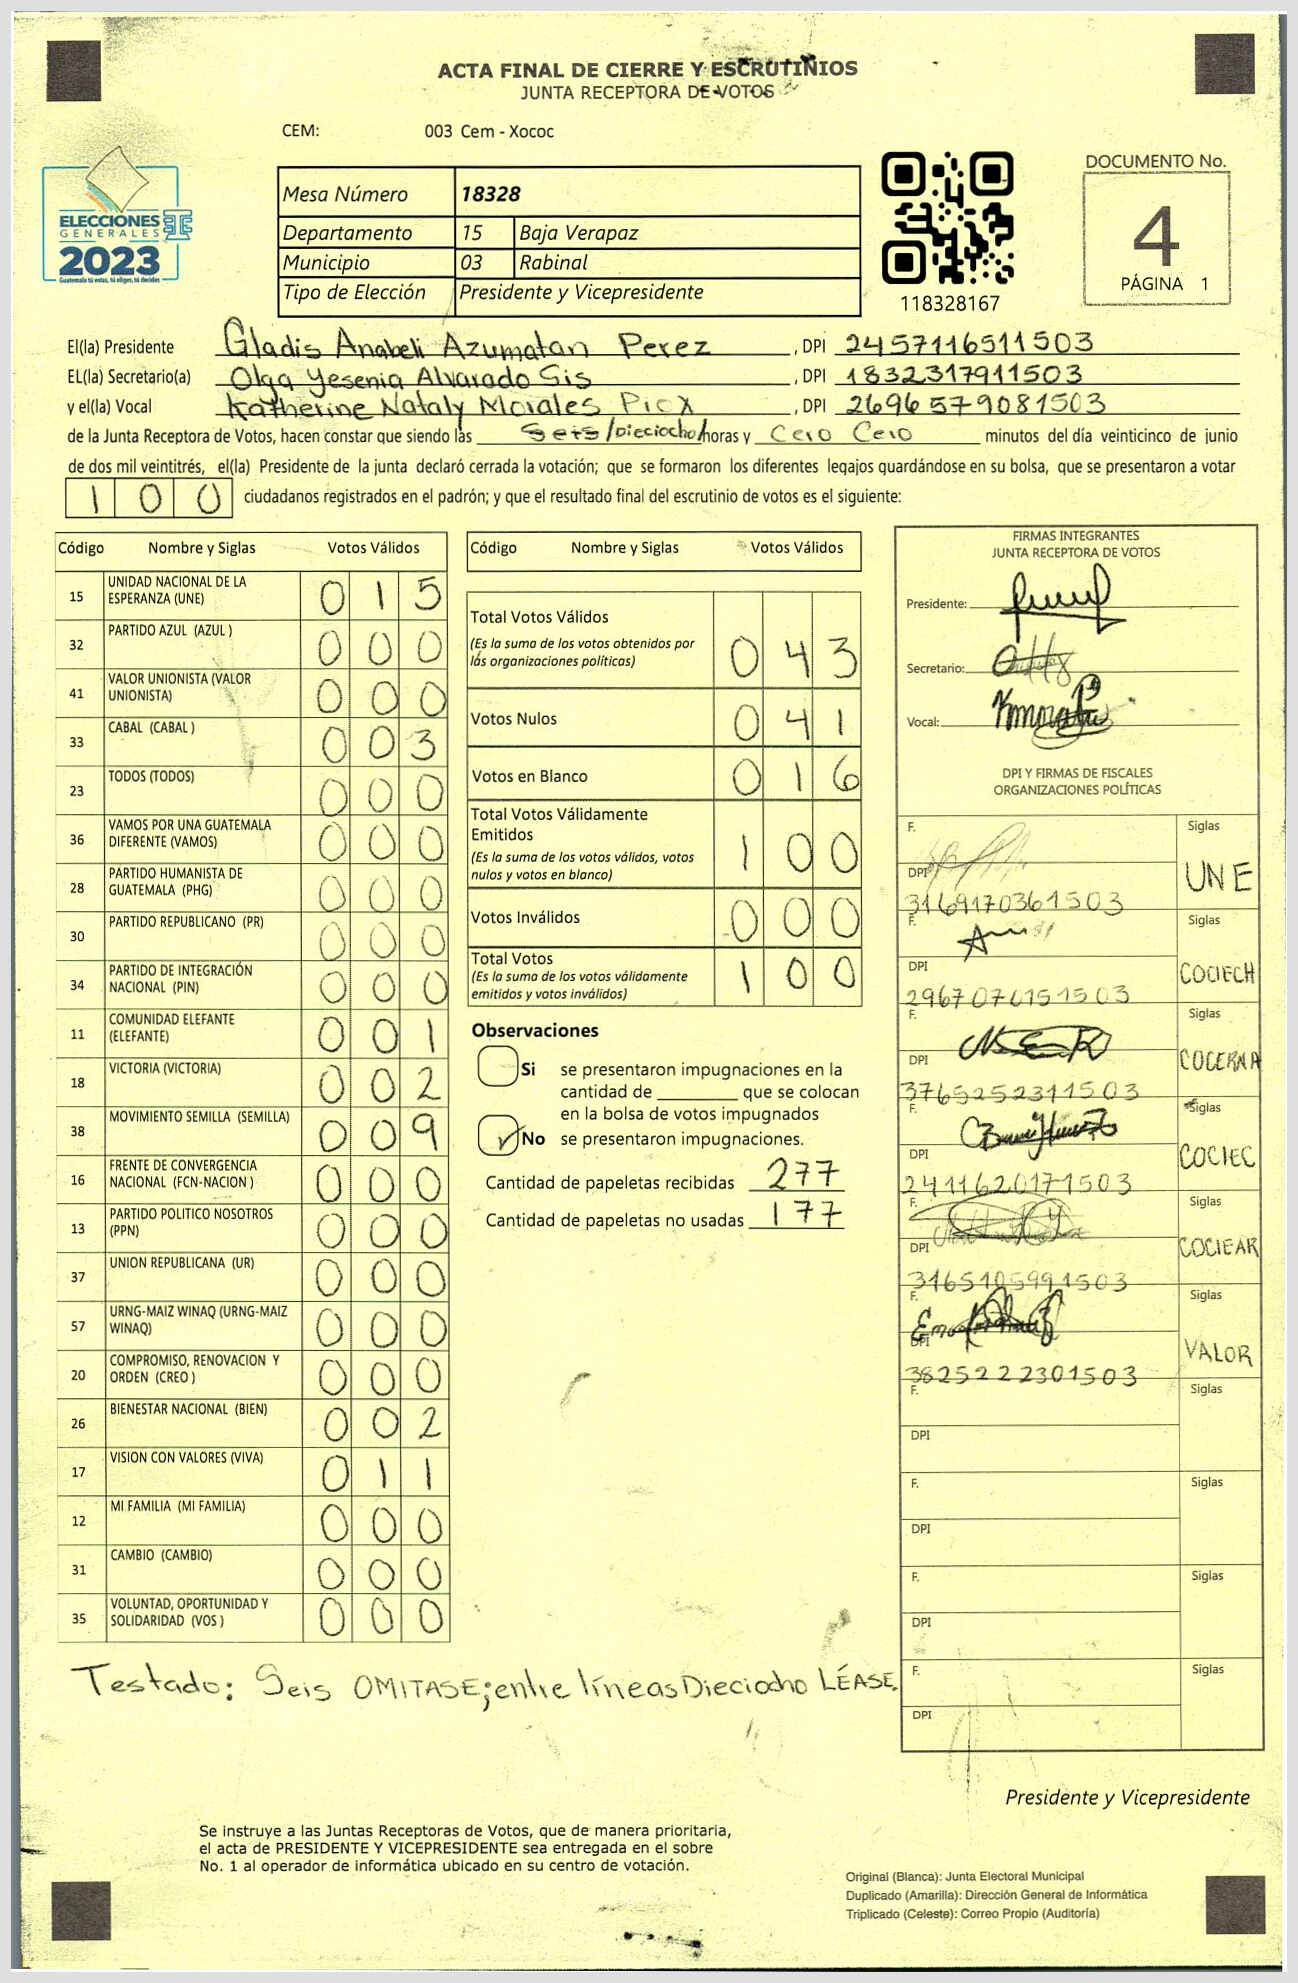 ACTA FINAL DE CIERRE Y ESCRUTINIOS
JUNTA RECEPTORA DE VOTOS
CEM: 003 Cem - Xococ
ELECCIONES
GENERALES
2023
Guatemala tú votas, tú eliges, tú decides
Mesa Número 18328
Departamento 15 Baja Verapaz
Municipio 03 Rabinal
Tipo de Elección Presidente y Vicepresidente
118328167
DOCUMENTO No.
4
PÁGINA 1
El(la) Presidente Gladis Anabeli Azumatan Perez , DPI 2457116511503
EL(la) Secretario(a) Olga Yesenia Alvarado Sis , DPI 1832317911503
y el(la) Vocal Katherine Nataly Morales Picx , DPI 2696579081503
de la Junta Receptora de Votos, hacen constar que siendo las Seis/Dieciocho/horas y Cero Cero minutos del día veinticinco de junio
de dos mil veintitrés, el(la) Presidente de la junta declaró cerrada la votación; que se formaron los diferentes legajos guardándose en su bolsa, que se presentaron a votar
100 ciudadanos registrados en el padrón; y que el resultado final del escrutinio de votos es el siguiente:
Código Nombre y Siglas Votos Válidos
15 UNIDAD NACIONAL DE LA ESPERANZA (UNE) 015
32 PARTIDO AZUL (AZUL ) 000
41 VALOR UNIONISTA (VALOR UNIONISTA) 000
33 CABAL (CABAL ) 003
23 TODOS (TODOS) 000
36 VAMOS POR UNA GUATEMALA DIFERENTE (VAMOS) 000
28 PARTIDO HUMANISTA DE GUATEMALA (PHG) 000
30 PARTIDO REPUBLICANO (PR) 000
34 PARTIDO DE INTEGRACIÓN NACIONAL (PIN) 000
11 COMUNIDAD ELEFANTE (ELEFANTE) 001
18 VICTORIA (VICTORIA) 002
38 MOVIMIENTO SEMILLA (SEMILLA) 009
16 FRENTE DE CONVERGENCIA NACIONAL (FCN-NACION ) 000
13 PARTIDO POLITICO NOSOTROS (PPN) 000
37 UNION REPUBLICANA (UR) 000
57 URNG-MAIZ WINAQ (URNG-MAIZ WINAQ) 000
20 COMPROMISO, RENOVACION Y ORDEN (CREO ) 000
26 BIENESTAR NACIONAL (BIEN) 002
17 VISION CON VALORES (VIVA) 011
12 MI FAMILIA (MI FAMILIA) 000
31 CAMBIO (CAMBIO) 000
35 VOLUNTAD, OPORTUNIDAD Y SOLIDARIDAD (VOS ) 000
Código Nombre y Siglas Votos Válidos
Total Votos Válidos 043
(Es la suma de los votos obtenidos por
las organizaciones políticas)
Votos Nulos 041
Votos en Blanco 016
Total Votos Válidamente
Emitidos 100
(Es la suma de los votos válidos, votos
nulos y votos en blanco)
Votos Inválidos 000
Total Votos 100
(Es la suma de los votos válidamente
emitidos y votos inválidos)
Observaciones
Si se presentaron impugnaciones en la
cantidad de ________ que se colocan
en la bolsa de votos impugnados
No se presentaron impugnaciones.
Cantidad de papeletas recibidas 277
Cantidad de papeletas no usadas 177
FIRMAS INTEGRANTES
JUNTA RECEPTORA DE VOTOS
Presidente:
Secretario:
Vocal:
DPI Y FIRMAS DE FISCALES
ORGANIZACIONES POLÍTICAS
F. Siglas
DPI UNE
3169170361503
F. Siglas
DPI COCIECH
2967070151503
F. Siglas
DPI COCERNA
3765252311503
F. Siglas
DPI COCIEC
2411620171503
F. Siglas
DPI COCIEAR
3165105991503
F. Siglas
DPI VALOR
3825222301503
F. Siglas
DPI
F. Siglas
DPI
F. Siglas
DPI
F. Siglas
DPI
Testado: Seis OMITASE; entre líneas Dieciocho LÉASE.
Presidente y Vicepresidente
Se instruye a las Juntas Receptoras de Votos, que de manera prioritaria,
el acta de PRESIDENTE Y VICEPRESIDENTE sea entregada en el sobre
No. 1 al operador de informática ubicado en su centro de votación.
Original (Blanca): Junta Electoral Municipal
Duplicado (Amarilla): Dirección General de Informática
Triplicado (Celeste): Correo Propio (Auditoría)